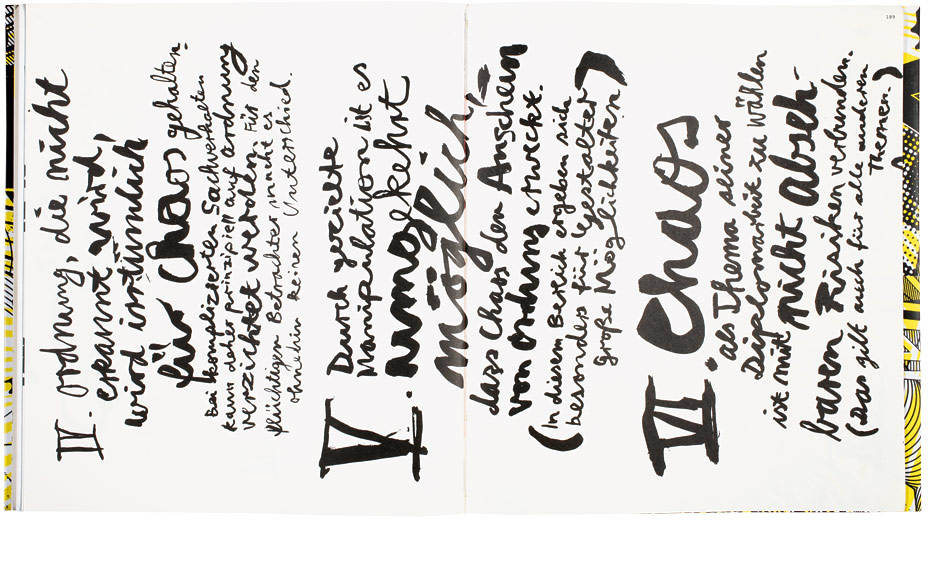 189
IV. ordnung, die nicht
erkannt wird,
wird irrtümlich
für Chaos gehalten.
Bei komplizierten Sachverhalten
kann daher prinzipiell auf ordnung
verzichtet werden. Für den
flüchtigen Betrachter macht es
ohnehin keinen Unterschied.
V. Durch gezielte
Manipulation ist es
umgekehrt
möglich,
dass Chaos den Anschein
von ordnung erweckt.
(In diesem Bereich ergeben sich
besonders für Gestalter
große Möglichkeiten)
VI. Chaos
als Thema seiner
Diplomarbeit zu wählen
ist mit nicht abseh-
baren Risiken verbunden.
(Das gilt auch für alle anderen
Themen.)